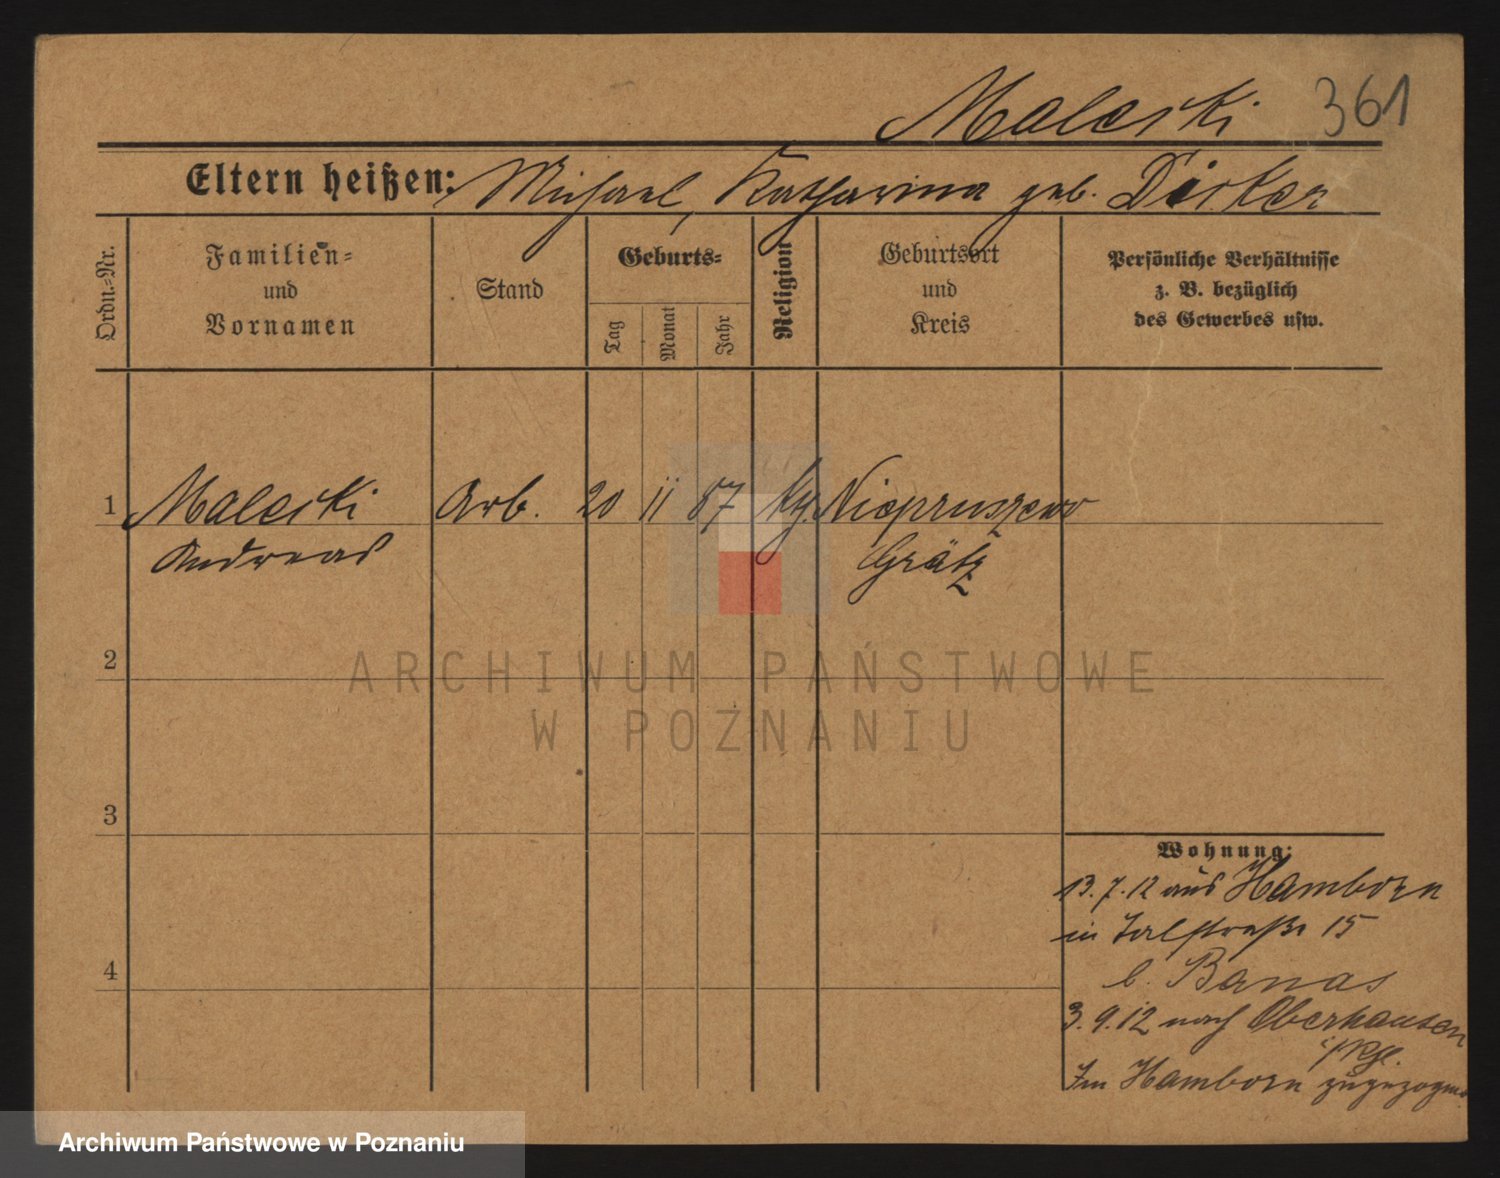 Maleski 361
Eltern heißen: Michael, Katharina geb. Dirker
Ordn.-Nr.
Familien-
und
Vornamen
Stand
Geburts-
Tag
Monat
Jahr
Religion
Geburtsort
und
Kreis
Persönliche Verhältnisse
z. B. bezüglich
des Gewerbes usw.
1 Maleski Arb. 20 11 87 kg. Niepruszewo
Andreas Grätz
2
3
4
Wohnung:
13.7.12 aus Hamborn
in Talstraße 15
b. Banas
3.9.12 nach Oberhausen
i/Rhl.
In Hamborn zugezogen
ARCHIWUM PAŃSTWOWE
W POZNANIU
Archiwum Państwowe w Poznaniu